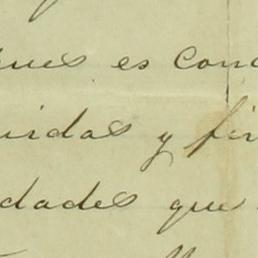 ues es cono
uidas y fir
dades que